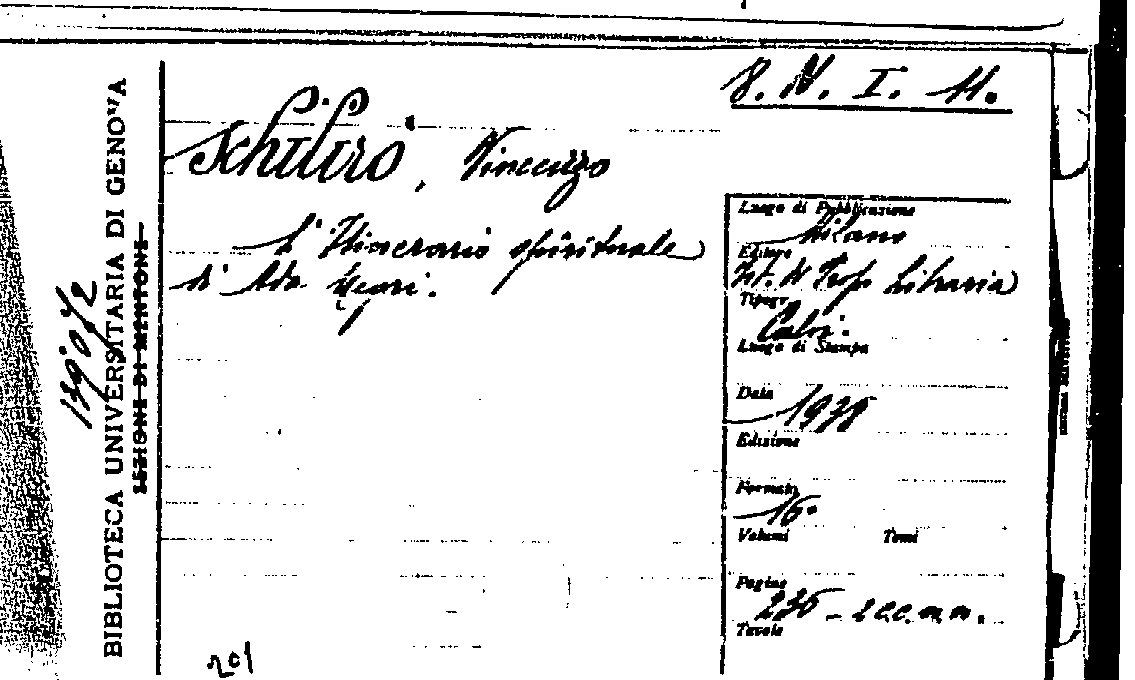 8. N. I. 11.
Schilirò, Vincenzo
L'Itinerario spirituale
di Ada Negri.
Luogo di Pubblicazione
Milano
Editore
Ist. di Prop. Libraria
Tipogr.
Calvi.
Luogo di Stampa
Data
1938
Edizione
Formato
16°
Volumi Tomi
Pagine
236 - 2 c.c. n. n.
Tavole
201
BIBLIOTECA UNIVERSITARIA DI GENOVA